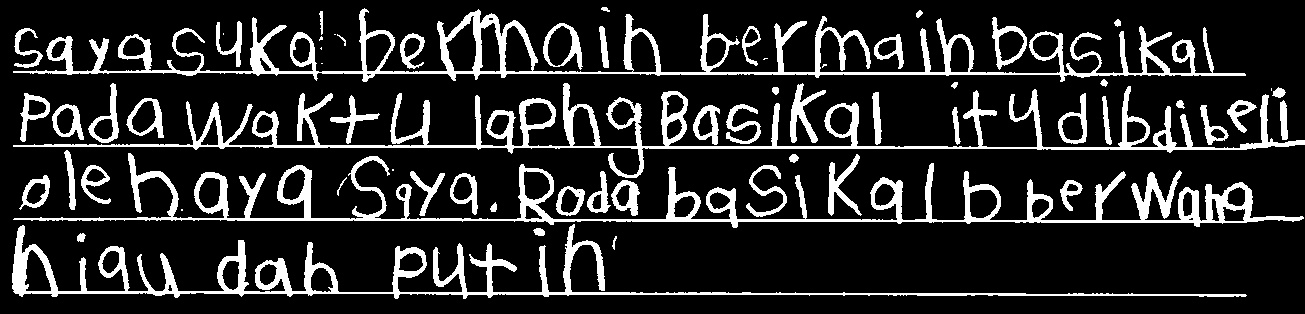 saya suka bermain bermain basikal
pada waktu laphg Basikal itu dibdibeli
oleh aya saya. Roda basikal b berwana
hiau dan putih